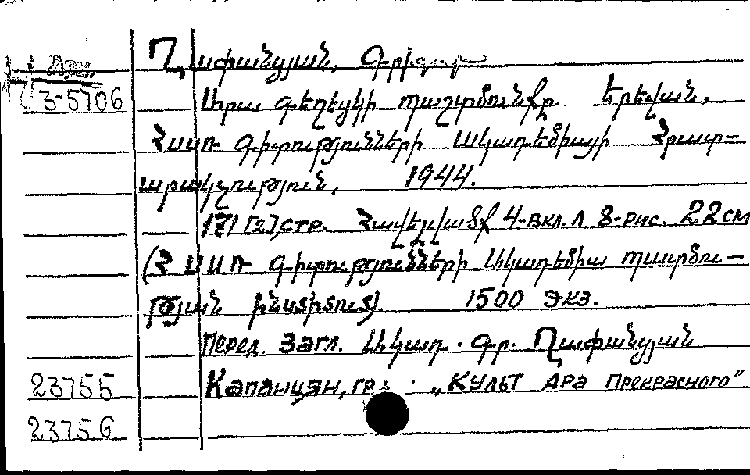 Ղափանցյան, Գրիգոր
3-5706 Արա գեղեցկի պաշտմունքը. Երեվան,
ՀՍՍՌ գիտությունների Ակադեմիայի Հրատ-
արակչություն, 1944.
171 [2] стр. Հավելված 4-вкл. л 8-рис. 22 см
(ՀՍՍՌ Գիտությունների Ակադեմիա պատմու-
թյան ինստիտուտ). 1500 экз.
Перел. загл. Ակադ. Գր. Ղափանցյան
23755 Капанцян, гр. : „Культ Ара Прекрасного"
23756